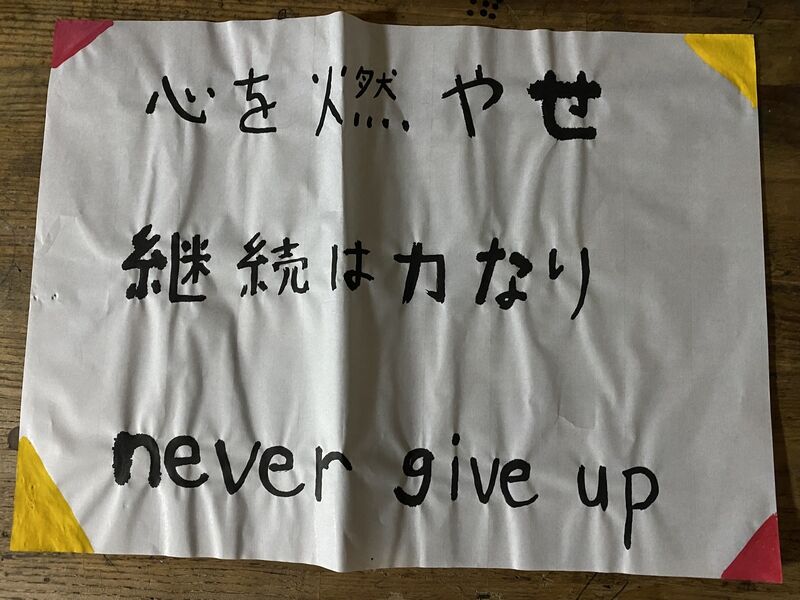 心を燃やせ
継続は力なり
never give up